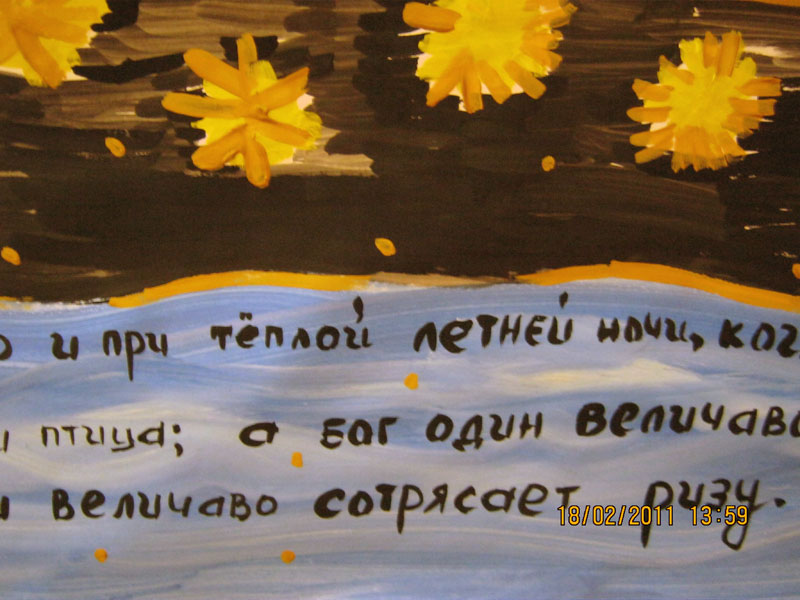 о и при тёплой летней ночи, ког
и птица; а Бог один величаво
и величаво сотрясает ризу.
18/02/2011 13:59